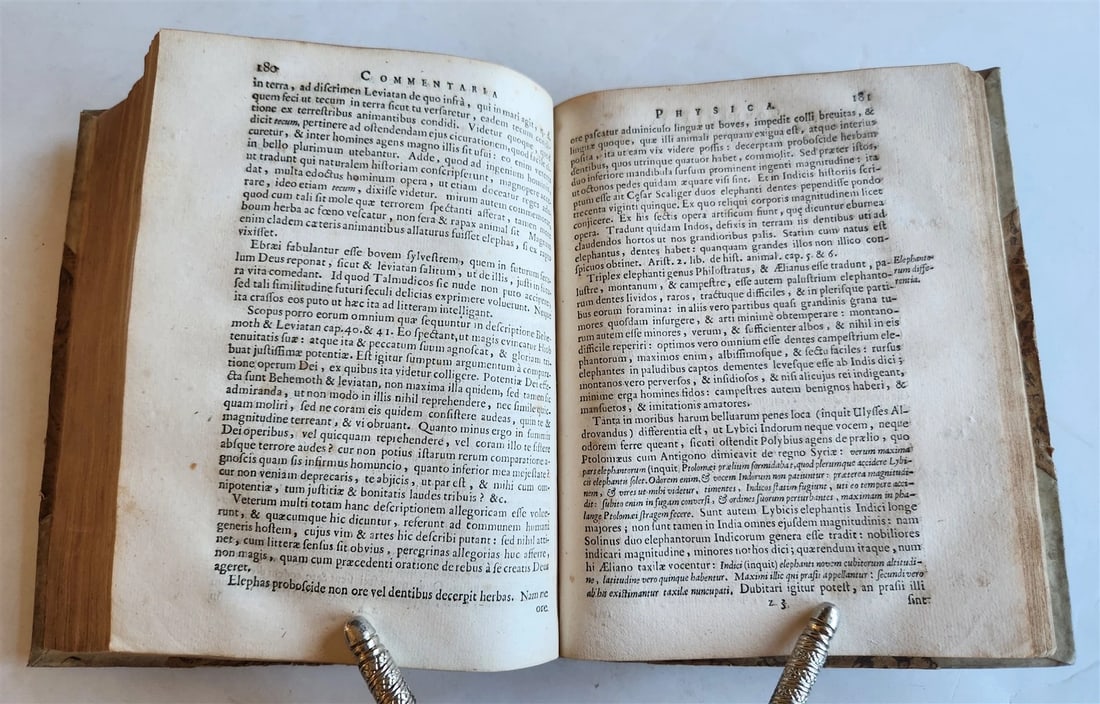 180
COMMENTARIA
in terra, ad discrimen Leviatan de quo infrà, qui in mari agit, q. d.
quem feci ut tecum in terra sicut tu versaretur, eadem tecum
tione ex terrestribus animantibus condidi. Videtur quoque, quod
dicit tecum, pertinere ad ostendendam ejus cicurationem, quod
curetur, & inter homines agens magno illis sit usui: eo enim
in bello plurimum utebantur. Adde, quod ad ingenium hominis
ut tradunt qui naturalem historiam conscripserunt, magnopere
dat, multa edoctus hominum opera, ut etiam doceatur reges
rare, ideo etiam tecum, dixisse videtur. mirum autem
quod cum tali sit mole quæ terrorem spectanti afferat, tamen
boum herba ac fœno vescatur, non fera & rapax animal sit. Magnam
enim cladem cæteris animantibus allaturus fuisset elephas, si ea
vixisset.
Ebræi fabulantur esse bovem sylvestrem, quem in futurum
lum Deus reponat, sicut & leviatan salitum, ut de illis, justi in
ra vita comedant. Id quod Talmudicos sic nude non puto accipere,
sed tali similitudine futuri seculi delicias exprimere voluerunt. Neque
ita crassos eos puto ut hæc ita ad litteram intelligant.
Scopus porro eorum omnium quæ sequuntur in descriptione Behe-
moth & Leviatan cap. 40. & 41. Eo spectant, ut magis evincatur Hiob
tenuitatis suæ: atque ita & peccatum suum agnoscat, & gloriam
buat justissimæ potentiæ. Est igitur sumptum argumentum à compara-
tione operum Dei, ex quibus ita videtur colligere. Potentiæ Dei effe-
cta sunt Behemoth & leviatan, non maxima illa quidem, sed tamen sic
admiranda, ut non modo in illis nihil reprehendere, nec simile
quam moliri, sed ne coram eis quidem consistere audeas, quin te &
magnitudine terreant, & vi obruant. Quanto minus ergo in summis
Dei operibus, vel quicquam reprehendere, vel coram illo te sistere
absque terrore audes? cur non potius istarum rerum comparatione a-
gnoscis quam sis infirmus homuncio, quanto inferior mea majestate?
cur non veniam deprecaris, te abjicis, ut par est, & mihi cum om-
nipotentiæ, tum justitiæ & bonitatis laudes tribuis? &c.
Veterum multi totam hanc descriptionem allegoricam esse volue-
runt, & quæcumque hic dicuntur, referunt ad communem humani
generis hostem, cujus vim & artes hic describi putant: sed nihil atti-
net, cum litteræ sensus sit obvius, peregrinas allegorias huc afferre,
non magis, quam cum præcedenti oratione de rebus à se creatis Deus
ageret.
Elephas proboscide non ore vel dentibus decerpit herbas. Nam ne
ore.
PHYSICA.
181
ore pascatur adminiculo linguæ ut boves, impedit colli brevitas, &
linguæ quoque, quæ illi animali perquam exigua est, atque interius
posita, ita ut eam vix videre possis: decerptam proboscide herbam
dentibus, quos utrinque quatuor habet, commolit. Sed præter istos,
duo inferiore mandibula sursum prominent ingenti magnitudine: ita
ut octonos pedes quidam æquare visi sint. Et in Indicis historiis scri-
ptum esse ait Cesar Scaliger duo elephanti dentes pependisse pondo
trecenta viginti quinque. Ex quo reliqui corporis magnitudinem licet
conjicere. Ex his sectis opera artificum fiunt, quę dicuntur eburnea
opera. Tradunt quidam Indos, defixis in terram iis dentibus uti ad
claudendos hortos ut nos grandioribus palis. Statim cum natus est
elephantus, dentes habet: quanquam grandes illos non illico con-
spicuos obtinet. Arist. 2. lib. de hist. animal. cap. 5. & 6.
Triplex elephanti genus Philostratus, & Ælianus esse tradunt, pa-
Elephanto-
lustre, montanum, & campestre, esse autem palustrium elephanto-
rum diffe-
rum dentes lividos, raros, tractuque difficiles, & in plerisque parti-
rentia.
bus eorum foramina: in aliis vero partibus quasi grandinis grana tu-
mores quosdam insurgere, & arti minimè obtemperare: montano-
rum autem esse minores, verum, & sufficienter albos, & nihil in eis
difficile reperiri: optimos vero omnium esse dentes campestrium ele-
phantorum, maximos enim, albissimosque, & sectu faciles: rursus
elephantes in paludibus captos dementes levesque esse ab Indis dici;
montanos vero perversos, & insidiosos, & nisi alicujus rei indigeant,
minime erga homines fidos: campestres autem benignos haberi, &
mansuetos, & imitationis amatores.
Tanta in moribus harum belluarum penes loca (inquit Ulysses Al-
drovandus) differentia est, ut Lybici Indorum neque vocem, neque
odorem ferre queant, sicuti ostendit Polybius agens de prælio, quo
Ptolomæus cum Antigono dimicavit de regno Syriæ: verum maxima
pars elephantorum (inquit) Ptolomæi prælium formidabat, quod plerumque accidere Lyby-
ciis elephantis solet. Odorem enim, & vocem Indorum non patiuntur: præterea magnitudi-
nem, & vires ut mihi videtur, timentes, Indicos statim fugiunt, uti eo tempore acci-
dit: subito enim in fugam conversi, & ordines suorum perturbantes, maximam in pha-
lange Ptolomæi stragem fecere. Sunt autem Lybicis elephantis Indici longe
majores; non sunt tamen in India omnes ejusdem magnitudinis: nam
Solinus duo elephantorum Indicorum genera esse tradit: nobiliores
indicari magnitudine, minores nothos dici; quærendum itaque, num
hi Æliano taxilæ vocentur: Indici (inquit) elephanti novem cubitorum altitudi-
ne, latitudine vero quinque habentur. Maximi illic qui prasii appellantur: secundi vero
ab his existimantur taxilæ nuncupati. Dubitari igitur potest, an prasii illi
z 3
sint